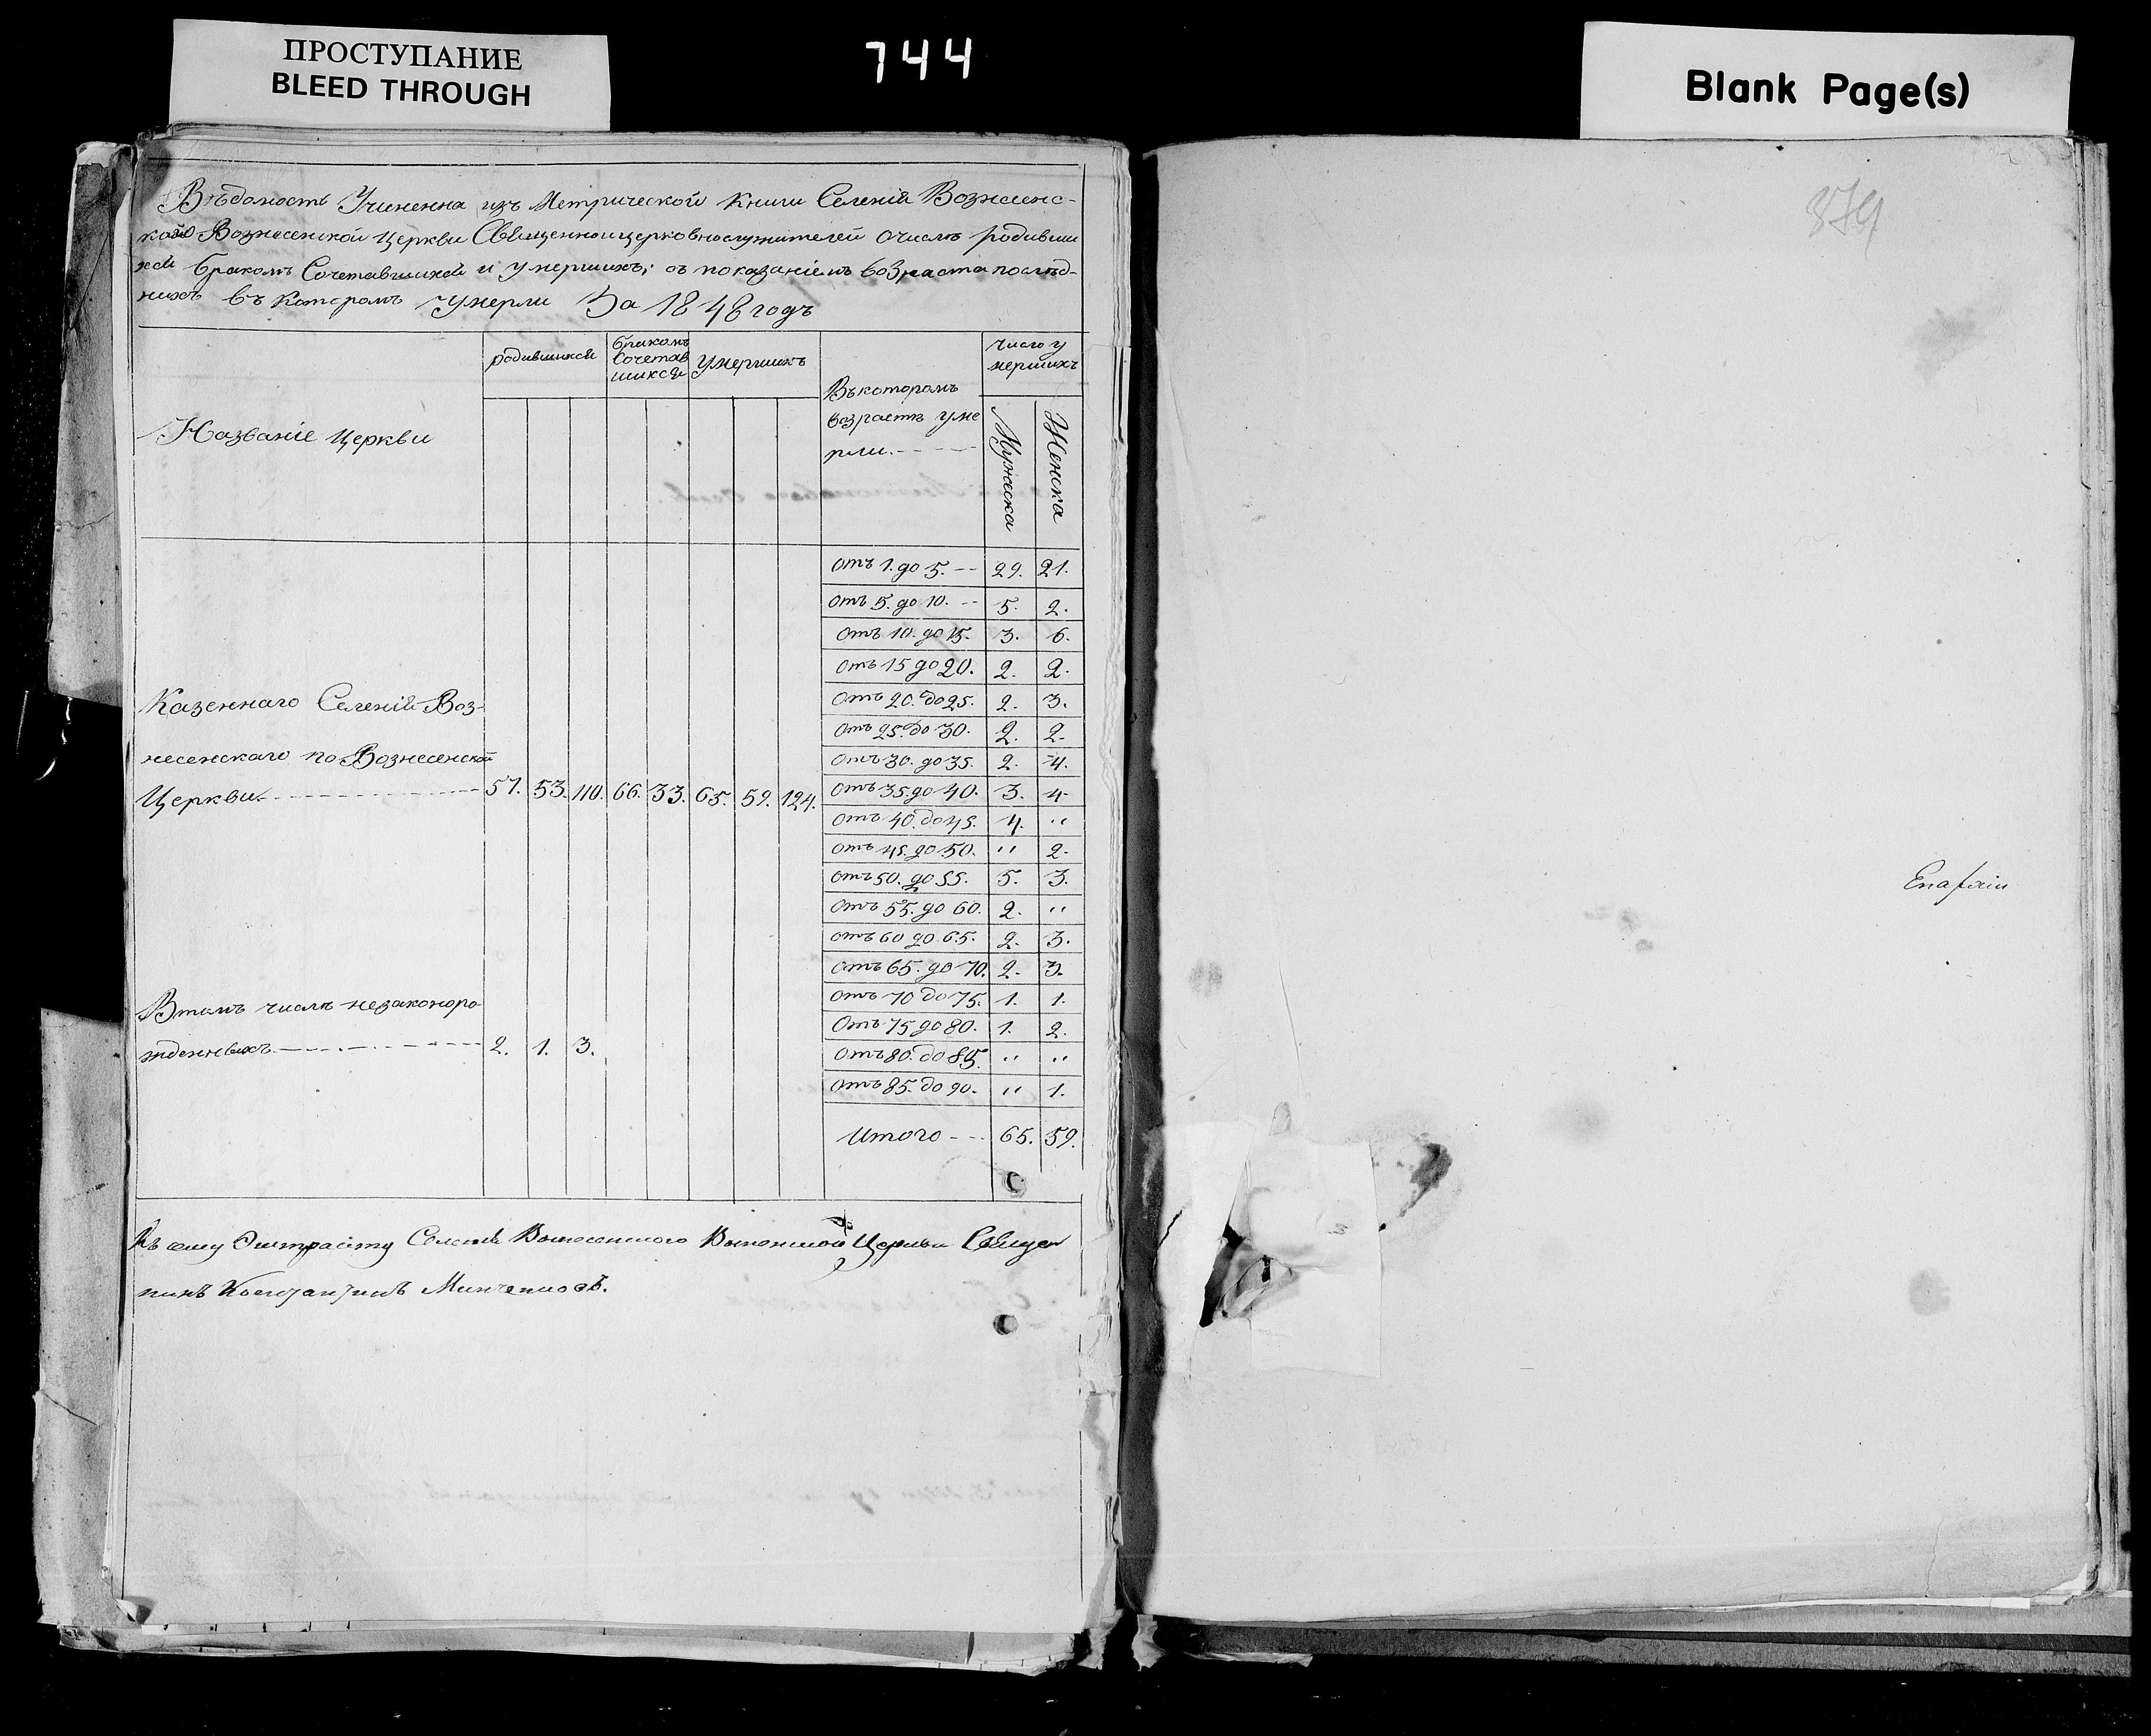 ПРОСТУПАНИЕ
BLEED THROUGH
744
Blank Page(s)
Вѣдомость Учиненна изъ Метрической Книги Селенія Вознесенс-
каго Вознесенской Церкви Священноицерковнослужителей очислѣ родивши
хся бракомъ Сочетавшихся и умершихъ; съ показаніемъ возраста послѣд-
нихъ въ Которомъ Умерли За 1848 годъ
Названіе Церкви
родившихся
бракомъ
Сочетав
шихся
Умершихъ
Въкоторомъ
возрастѣ уме
рли.
Число у
мершихъ
Мужеска
Женска
отъ 1. до 5. -- 29. 21.
отъ 5. до 10. -- 5. 2.
отъ 10. до 15. 3. 6.
отъ 15 до 20. 2. 2.
отъ 20. до 25. 2. 3.
отъ 25. до 30. 2. 2.
отъ 30. до 35. 2. 4.
отъ 35. до 40. 3. 4.
отъ 40. до 45. 4. "
отъ 45. до 50. " 2.
отъ 50. до 55. 5. 3.
отъ 55. до 60. 2. "
отъ 60 до 65. 2. 3.
отъ 65. до 70. 2. 3.
отъ 70 до 75. 1. 1.
отъ 75 до 80. 1. 2.
отъ 80. до 85. " "
отъ 85. до 90. " 1.
Итого -- 65. 59.
Казеннаго Селенія Воз-
несенскаго по Вознесенской
Церкви 57. 53. 110. 66. 33. 65. 59. 124.
Втомъ числѣ незаконоро
жденныхъ 2. 1. 3.
Къ сему Экстракту Селенія Вознесенского Вознесенской Церкви Священ
никъ Константинъ
379